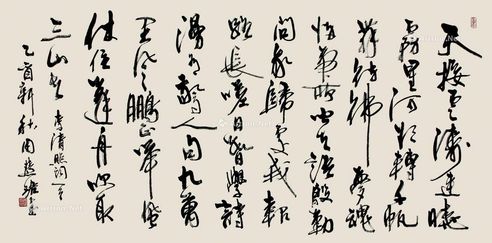 天接云涛連曉
霧星河欲轉千帆
舞彷彿夢魂
歸帝所聞天語殷勤
問我歸何處我報
路長嗟日暮學詩
謾有驚人句九萬
里風鵬正舉風
休住蓬舟吹取
三山去 李清照词一首
乙酉新秋周